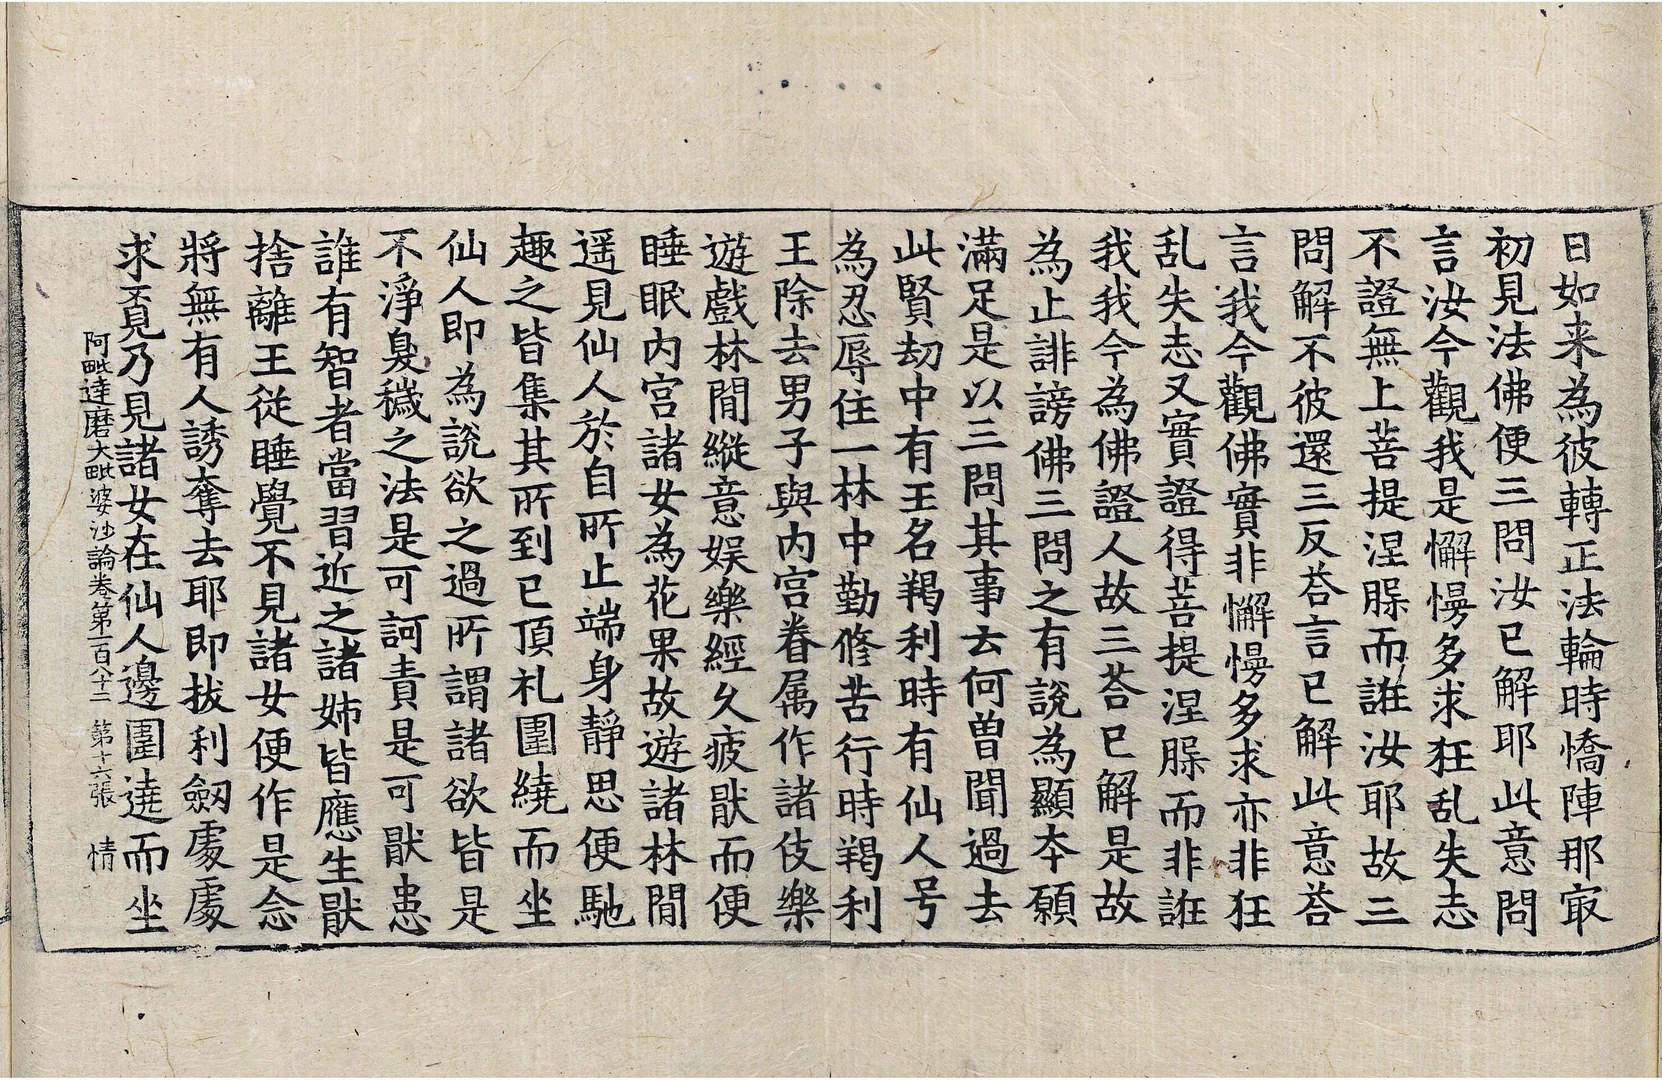 日如来為彼轉正法輪時憍陣那㝡
初見法佛便三問汝已解耶此意問
言汝今觀我是懈慢多求狂乱失志
不證無上菩提涅槃而誑汝耶故三
問解不彼還三反荅言已解此意荅
言我今觀佛實非懈慢多求亦非狂
乱失志又實證得菩提涅槃而非誑
我我今為佛證人故三荅已解是故
為止誹謗佛三問之有說為顯本願
滿足是以三問其事云何曾聞過去
此賢劫中有王名羯利時有仙人号
為忍辱住一林中勤修苦行時羯利
王除去男子與內宮眷属作諸伎樂
遊戲林間縱意娱樂經久疲猒而便
睡眠內宮諸女為花果故遊諸林間
遥見仙人於自所止端身靜思便馳
趣之皆集其所到已頂礼圍繞而坐
仙人即為說欲之過所謂諸欲皆是
不淨臭穢之法是可訶責是可猒患
誰有智者當習近之諸姉皆應生猒
捨離王從睡覺不見諸女便作是念
將無有人誘奪去耶即拔利劒處處
求覓乃見諸女在仙人邊圍遶而坐
阿毗達磨大毗婆沙論卷第一百八十二 第十六張 情